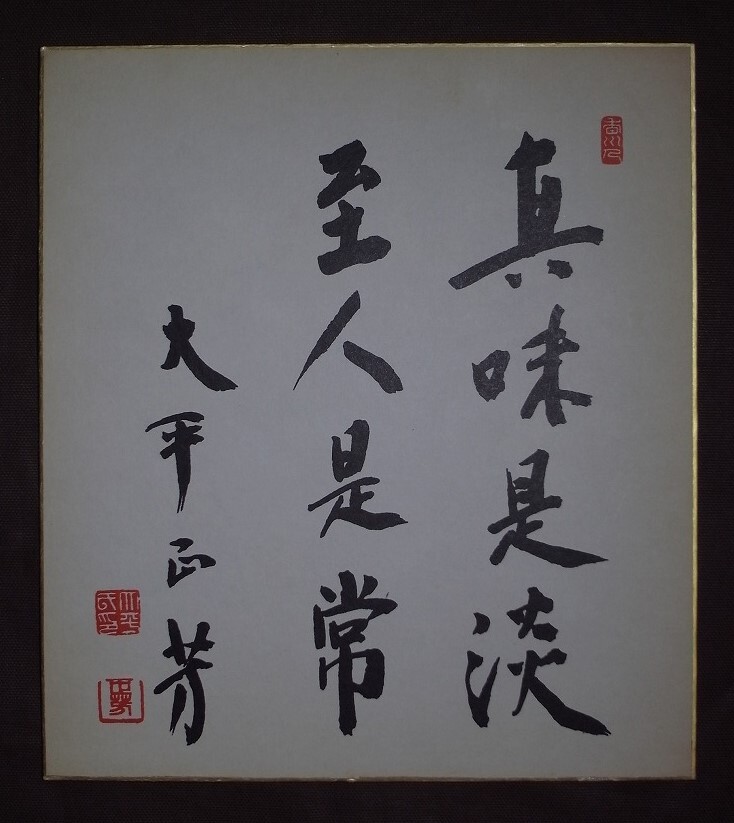 真味是淡
至人是常
大平正芳